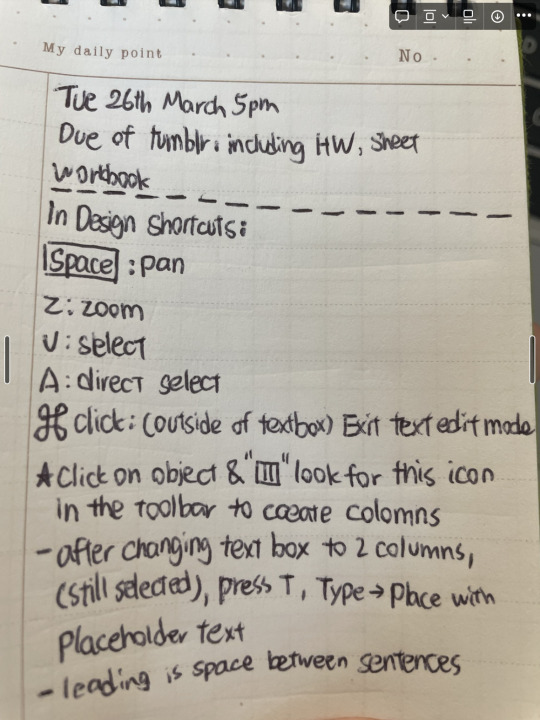 My daily point
No
Tue 26th March 5pm
Due of tumblr. including HW, sheet
workbook
In Design Shortcuts:
Space : pan
Z: zoom
V: select
A: direct select
⌘ click: (outside of textbox) Exit text edit mode
★ Click on object & "▥" look for this icon
in the toolbar to create colomns
- after changing text box to 2 columns,
(still selected), press T, Type → Place with
placeholder text
- leading is space between sentences